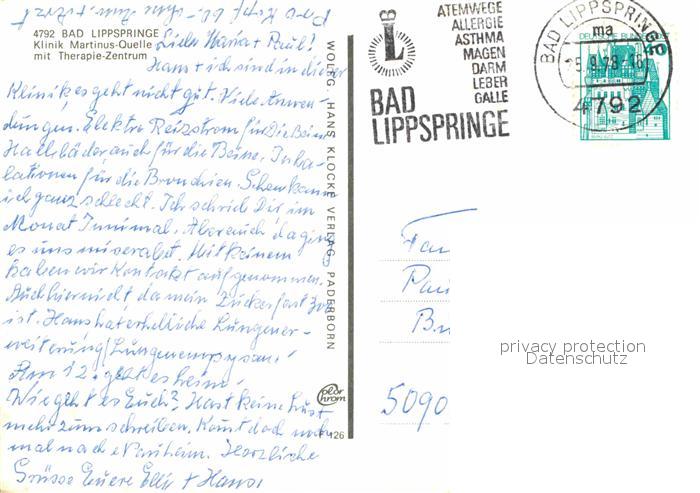 4792 BAD LIPPSPRINGE
Klinik Martinus-Quelle
mit Therapie-Zentrum
Liebe Maria + Paul!
Hans + ich sind in dieser
Klinik es geht nicht gut. Viele Anwen-
dungen. Elektro Reizstrom für die Beine
auch für die Beine. Inha-
lationen für die Bronchien. kann
ich ganz schlecht. Ich schrieb Dir im
Monat Juni mal. Aber auch da ging
es uns miserabel. Mit keinem
haben wir Kontakt aufgenommen.
Auch hier nicht da mein Zucker fast
ist. Hans hat erhebliche Lungener-
weiterung
Am 12. geht es heim.
Wie geht es Euch? Hast keine Lust
mehr zum schreiben. Komt doch noch
mal nach Nauheim. Herzliche
Grüsse Euere Elli + Hans
WOLFG. HANS KLOCKE VERLAG, PADERBORN
126
ATEMWEGE
ALLERGIE
ASTHMA
MAGEN
DARM
LEBER
GALLE
BAD
LIPPSPRINGE
BAD LIPPSPRINGE
ma
9.78-18
4792
DEUTSCHE BUNDESPOST
Fam
5090
privacy protection
Datenschutz